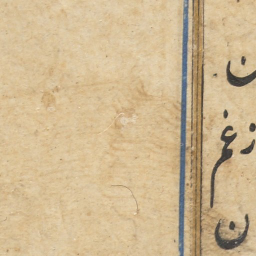 ن
ز غم
ن